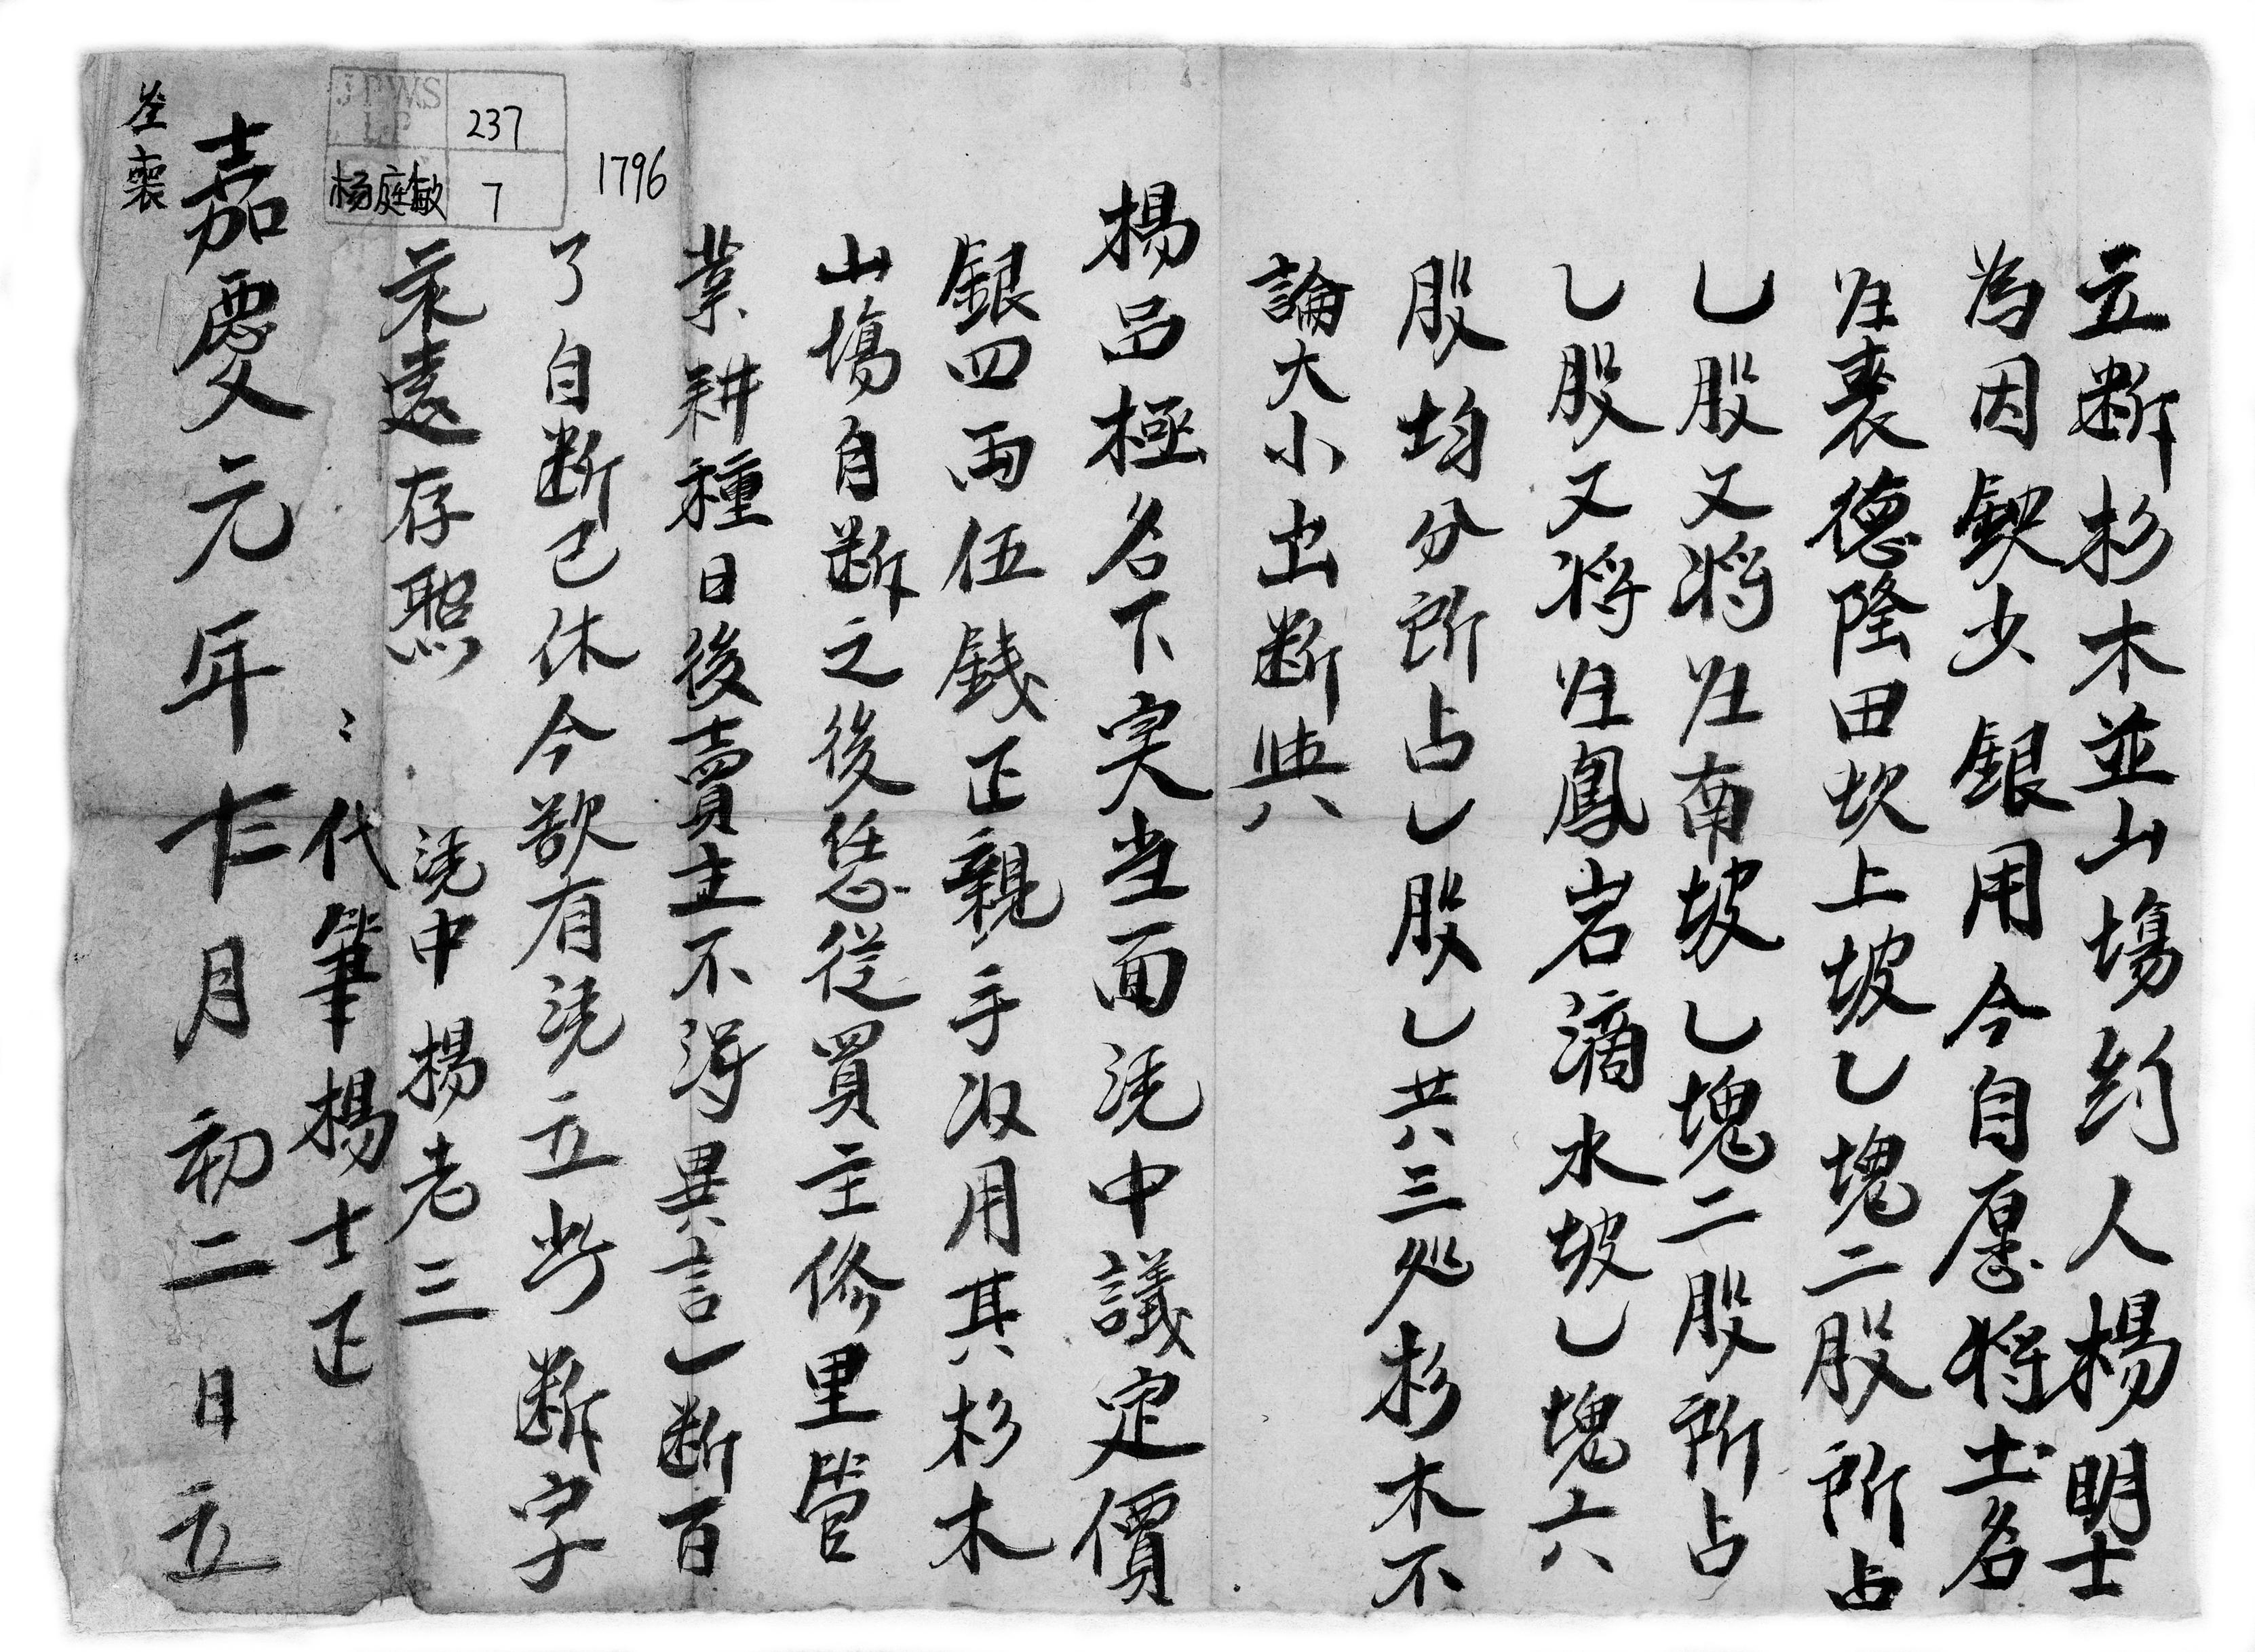 立断杉木並山塲約人楊明士
為因缺少銀用今自愿将土名
归裹德隆田坎上坡乚塊二股所占
乚股又将归南坡乚塊二股所占
乚股又将归鳳岩滴水坡乚塊六
股均分所占乚股乚共三处杉木不
論大小出断與
楊呂極名下実当面凴中議定價
銀四両伍銭正親手収用其杉木
山塲自断之後恁從買主修里管
業耕種日後賣主不得異言一断百
了自断已休今欲有凴立此断字
永遠存照
凴中楊老三
代筆楊士正
嘉慶元年七月初二日立
JPWS
LP
237
杨庭敏
7
1796